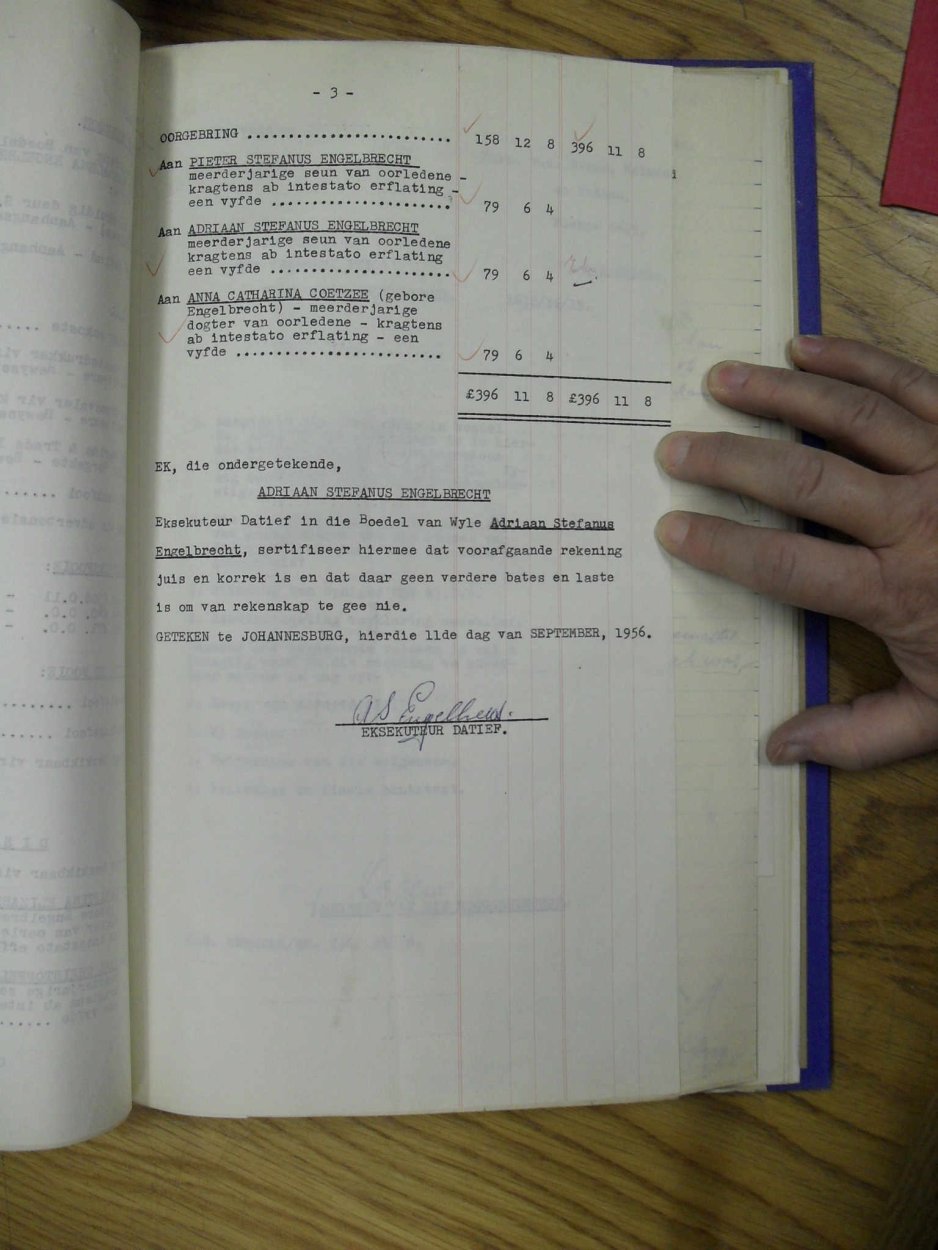 - 3 -
OORGEBRING .......................... 158 12 8 396 11 8
Aan PIETER STEFANUS ENGELBRECHT
meerderjarige seun van oorledene -
kragtens ab intestato erflating -
een vyfde ....................... 79 6 4
Aan ADRIAAN STEFANUS ENGELBRECHT
meerderjarige seun van oorledene
kragtens ab intestato erflating
een vyfde ....................... 79 6 4
Aan ANNA CATHARINA COETZEE (gebore
Engelbrecht) - meerderjarige
dogter van oorledene - kragtens
ab intestato erflating - een
vyfde .......................... 79 6 4
£396 11 8 £396 11 8
EK, die ondergetekende,
ADRIAAN STEFANUS ENGELBRECHT
Eksekuteur Datief in die Boedel van Wyle Adriaan Stefanus
Engelbrecht, sertifiseer hiermee dat voorafgaande rekening
juis en korrek is en dat daar geen verdere bates en laste
is om van rekenskap te gee nie.
GETEKEN te JOHANNESBURG, hierdie 11de dag van SEPTEMBER, 1956.
EKSEKUTEUR DATIEF.